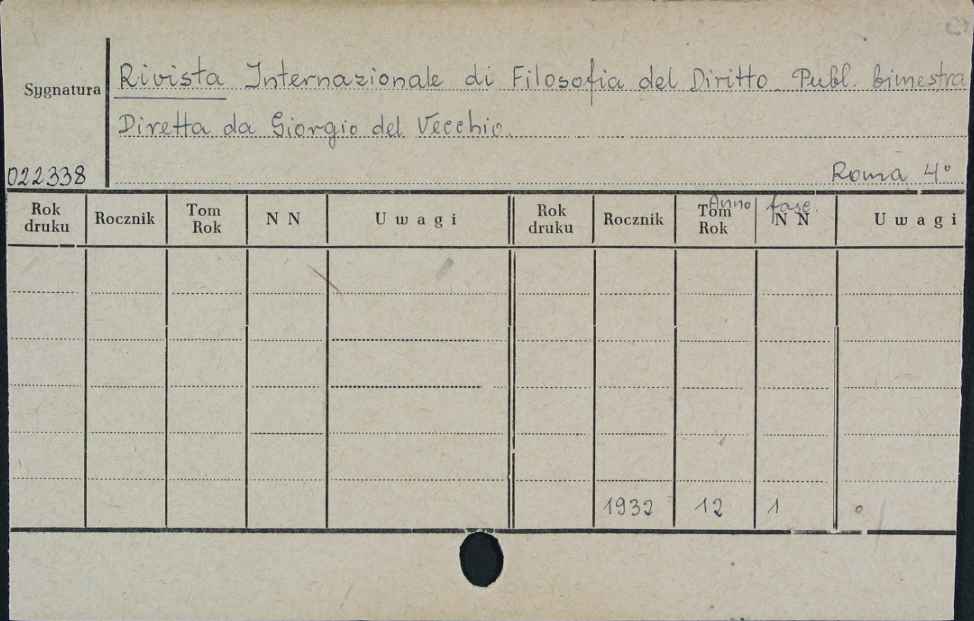 Sygnatura
Rivista Internazionale di Filosofia del Diritto Publ. bimestra
Diretta da Giorgio del Vecchio.
022338
Roma 4°
Rok druku Rocznik Tom Rok N N Uwagi Rok druku Rocznik Tom Rok Anno N N fasc. Uwagi
1932 12 1